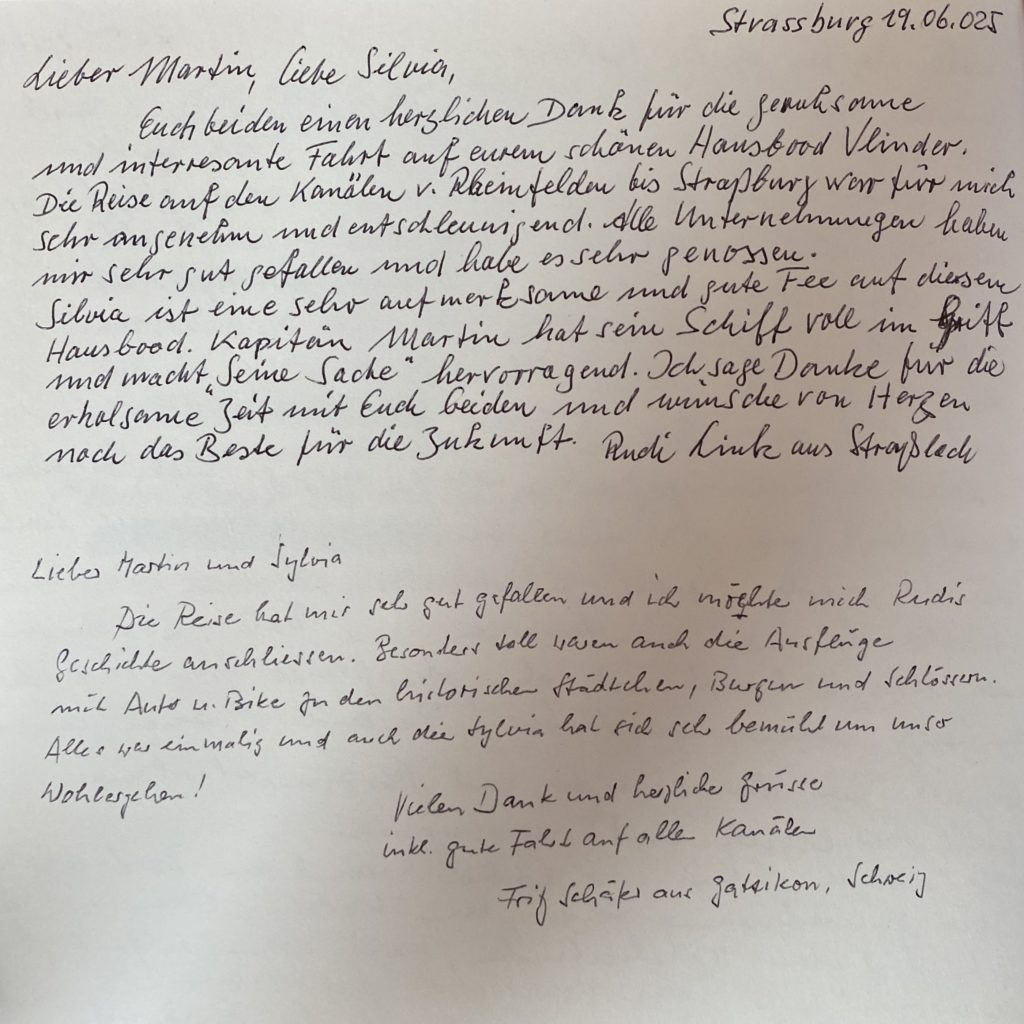 Strassburg 19.06.025
Lieber Martin, liebe Silvia,
Euch beiden einen herzlichen Dank für die geruhsame
und interresante Fahrt auf eurem schönen Hausbood Vlinder.
Die Reise auf den Kanälen v. Rheinfelden bis Straßburg war für mich
sehr angenehm und entschleunigend. Alle Unternehmungen haben
mir sehr gut gefallen und habe es sehr genossen.
Silvia ist eine sehr aufmerksame und gute Fee auf diesem
Hausbood. Kapitän Martin hat sein Schiff voll im Griff
und macht "seine Sache" hervorragend. Ich sage Danke für die
erholsame Zeit mit Euch beiden und wünsche von Herzen
noch das Beste für die Zukunft. Rudi Link aus Straßlach
Lieber Martin und Sylvia
Die Reise hat mir sehr gut gefallen und ich möchte mich Rudis
Geschichte anschliessen. Besonders toll waren auch die Ausflüge
mit Auto u. Bike zu den historischen Städtchen, Burgen und Schlössern.
Alles war einmalig und auch die Sylvia hat sich sehr bemüht um unser
Wohlergehen!
Vielen Dank und herzliche Grüsse
inkl. gute Fahrt auf allen Kanälen
Fritz Schäfer aus Schweiz